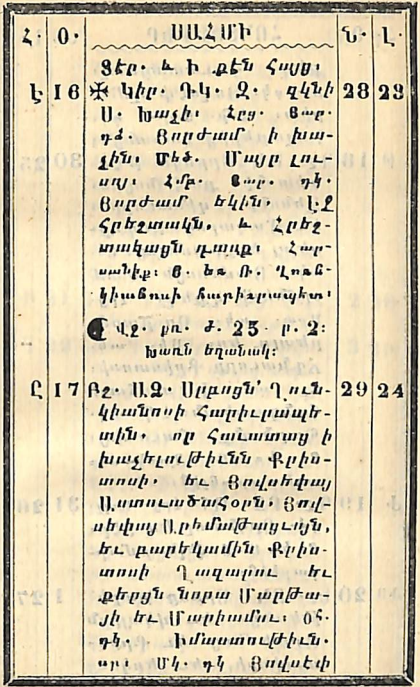 Հ. Օ. ՍԱՀՄԻ Ն. Լ.
Յեր. և ի քէն Հայց.
Է 16 ✠ Կիր. ԴԿ. Զ. զկնի 28 23
Ս. Խաչի. Հրց. Յար.
դձ. Յորժամ ի խա-
չին. Մեծ. Մայր լու-
սոյ Հմբ. Յար. դկ.
Յորժամ եկին. ԷՋ
Հրեշտակն. և Հրեշ-
տակացն դասք. Հար-
սանիք. Յ. եռ Ռ. Ղունկ-
կիանոսի հարիւրապետ.
ՎՋ. քռ. ժ. 25. ր. 2:
Խառն եղանակ:
Ը 17 Բշ. ԱՁ. Սրբոցն՝ Ղուն- 29 24
կիանոսի Հարիւրապե-
տին, որ Հաւատաց ի
խաչելութիւնն Քրիս-
տոսի. եւ Յովսեփայ
ԱստուածաՀօրն. Յով-
սեփայ Արեմաթացւոյն,
եւ բարեկամին Քրիս-
տոսի Ղազարու եւ
քերցն նորա Մարթա-
յի եւ Մարիամու. օՀ.
դկ. Իմաստութիւն.
սր. Մկ. դկ Յովսէփ